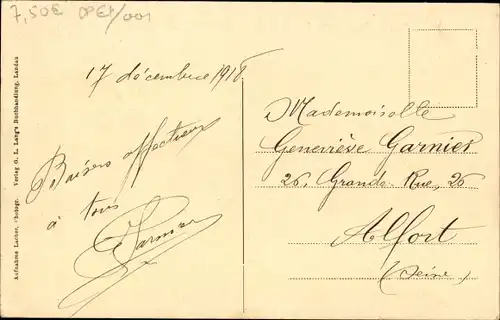 7,50€ OPE1/001
17 décembre 1918
Baisers affectueux
à tous
Mademoiselle
Geneviève Garnier
26, Grande Rue, 26
Alfort
(Seine)
Aufnahme Lacher, Photogr. Verlag G. L. Lang's Buchhandlung, Landau